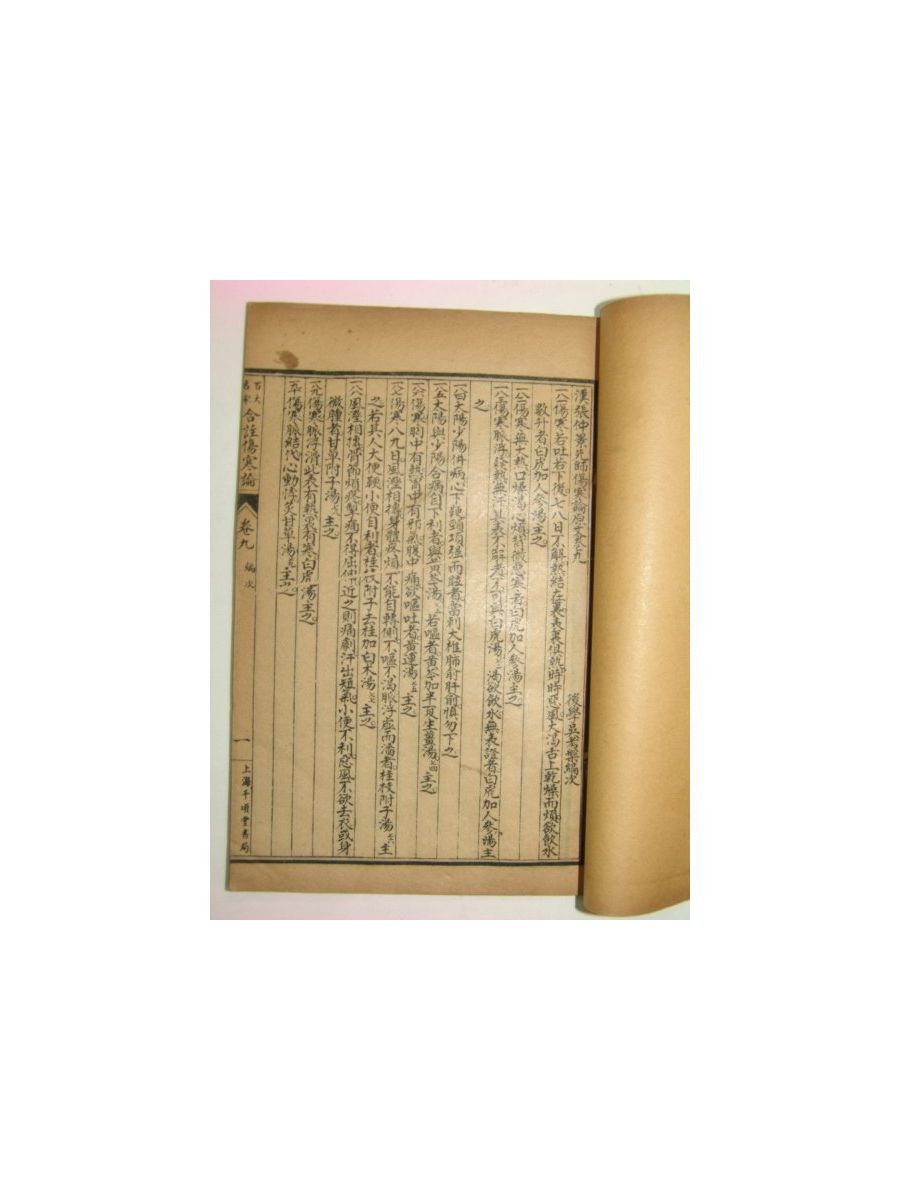 漢張仲景先師傷寒論原文卷九
後學吳考槃編次
一八一傷寒若吐若下後七八日不解熱結在裏表裏俱熱時時惡風大渴舌上乾燥而煩欲飲水
數升者白虎加人參湯主之
一八二傷寒無大熱口燥渴心煩背微惡寒者白虎加人參湯主之
一八三傷寒脈浮發熱無汗其表不解者不可與白虎湯渴欲飲水無表證者白虎加人參湯主
之
一八四太陽少陽併病心下鞕頭項强而眩者當刺大椎肺俞肝俞慎勿下之
一八五太陽與少陽合病自下利者與黃芩湯若嘔者黃芩加半夏生薑湯主之
一八六傷寒胸中有熱胃中有邪氣腹中痛欲嘔吐者黃連湯主之
一八七傷寒八九日風溼相搏身體疼煩不能自轉側不嘔不渴脈浮虛而濇者桂枝附子湯主
之若其人大便鞕小便自利者桂枝附子去桂加白朮湯主之
一八八風溼相搏骨節煩疼掣痛不得屈伸近之則痛劇汗出短氣小便不利惡風不欲去衣或身
微腫者甘草附子湯主之
一八九傷寒脈浮滑此表有熱裏有寒白虎湯主之
一九十傷寒脈結代心動悸炙甘草湯主之
百大名家合註傷寒論
卷九
編次
一
上海千頃堂書局